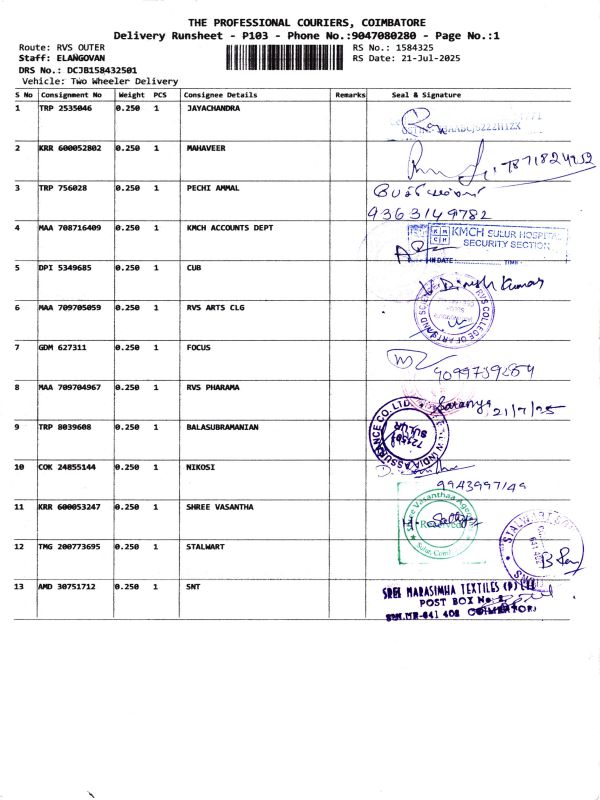 THE PROFESSIONAL COURIERS, COIMBATORE
Delivery Runsheet - P103 - Phone No.:9047080280 - Page No.:1
Route: RVS OUTER RS No.: 1584325
Staff: ELANGOVAN RS Date: 21-Jul-2025
DRS No.: DCJB158432501
Vehicle: Two Wheeler Delivery
S No Consignment No Weight PCS Consignee Details Remarks Seal & Signature
1 TRP 2535046 0.250 1 JAYACHANDRA
2 KRR 600052802 0.250 1 MAHAVEER
3 TRP 756028 0.250 1 PECHI AMMAL
9363149782
4 MAA 708716409 0.250 1 KMCH ACCOUNTS DEPT KMCH SULUR HOSPITAL
SECURITY SECTION
IN DATE: TIME
5 DPI 5349685 0.250 1 CUB V. Dinesh Kumar
6 MAA 709705059 0.250 1 RVS ARTS CLG RVS COLLEGE OF ARTS AND SCIENCE
7 GDM 627311 0.250 1 FOCUS
8 MAA 709704967 0.250 1 RVS PHARAMA Saranya 21/7/25
9 TRP 8039608 0.250 1 BALASUBRAMANIAN INDIA ASSURANCE CO. LTD.
SULUR
10 COK 24855144 0.250 1 NIKOSI
9943997149
11 KRR 600053247 0.250 1 SHREE VASANTHA Shree Vasanthaa Agency
Received
Sulur, Coimb
12 TMG 200773695 0.250 1 STALWART STALWART
641 402
13 AMD 30751712 0.250 1 SNT SREE NARASIMHA TEXTILES (P) LTD
POST BOX No. 2
SULUR-641 402 COIMBATORE